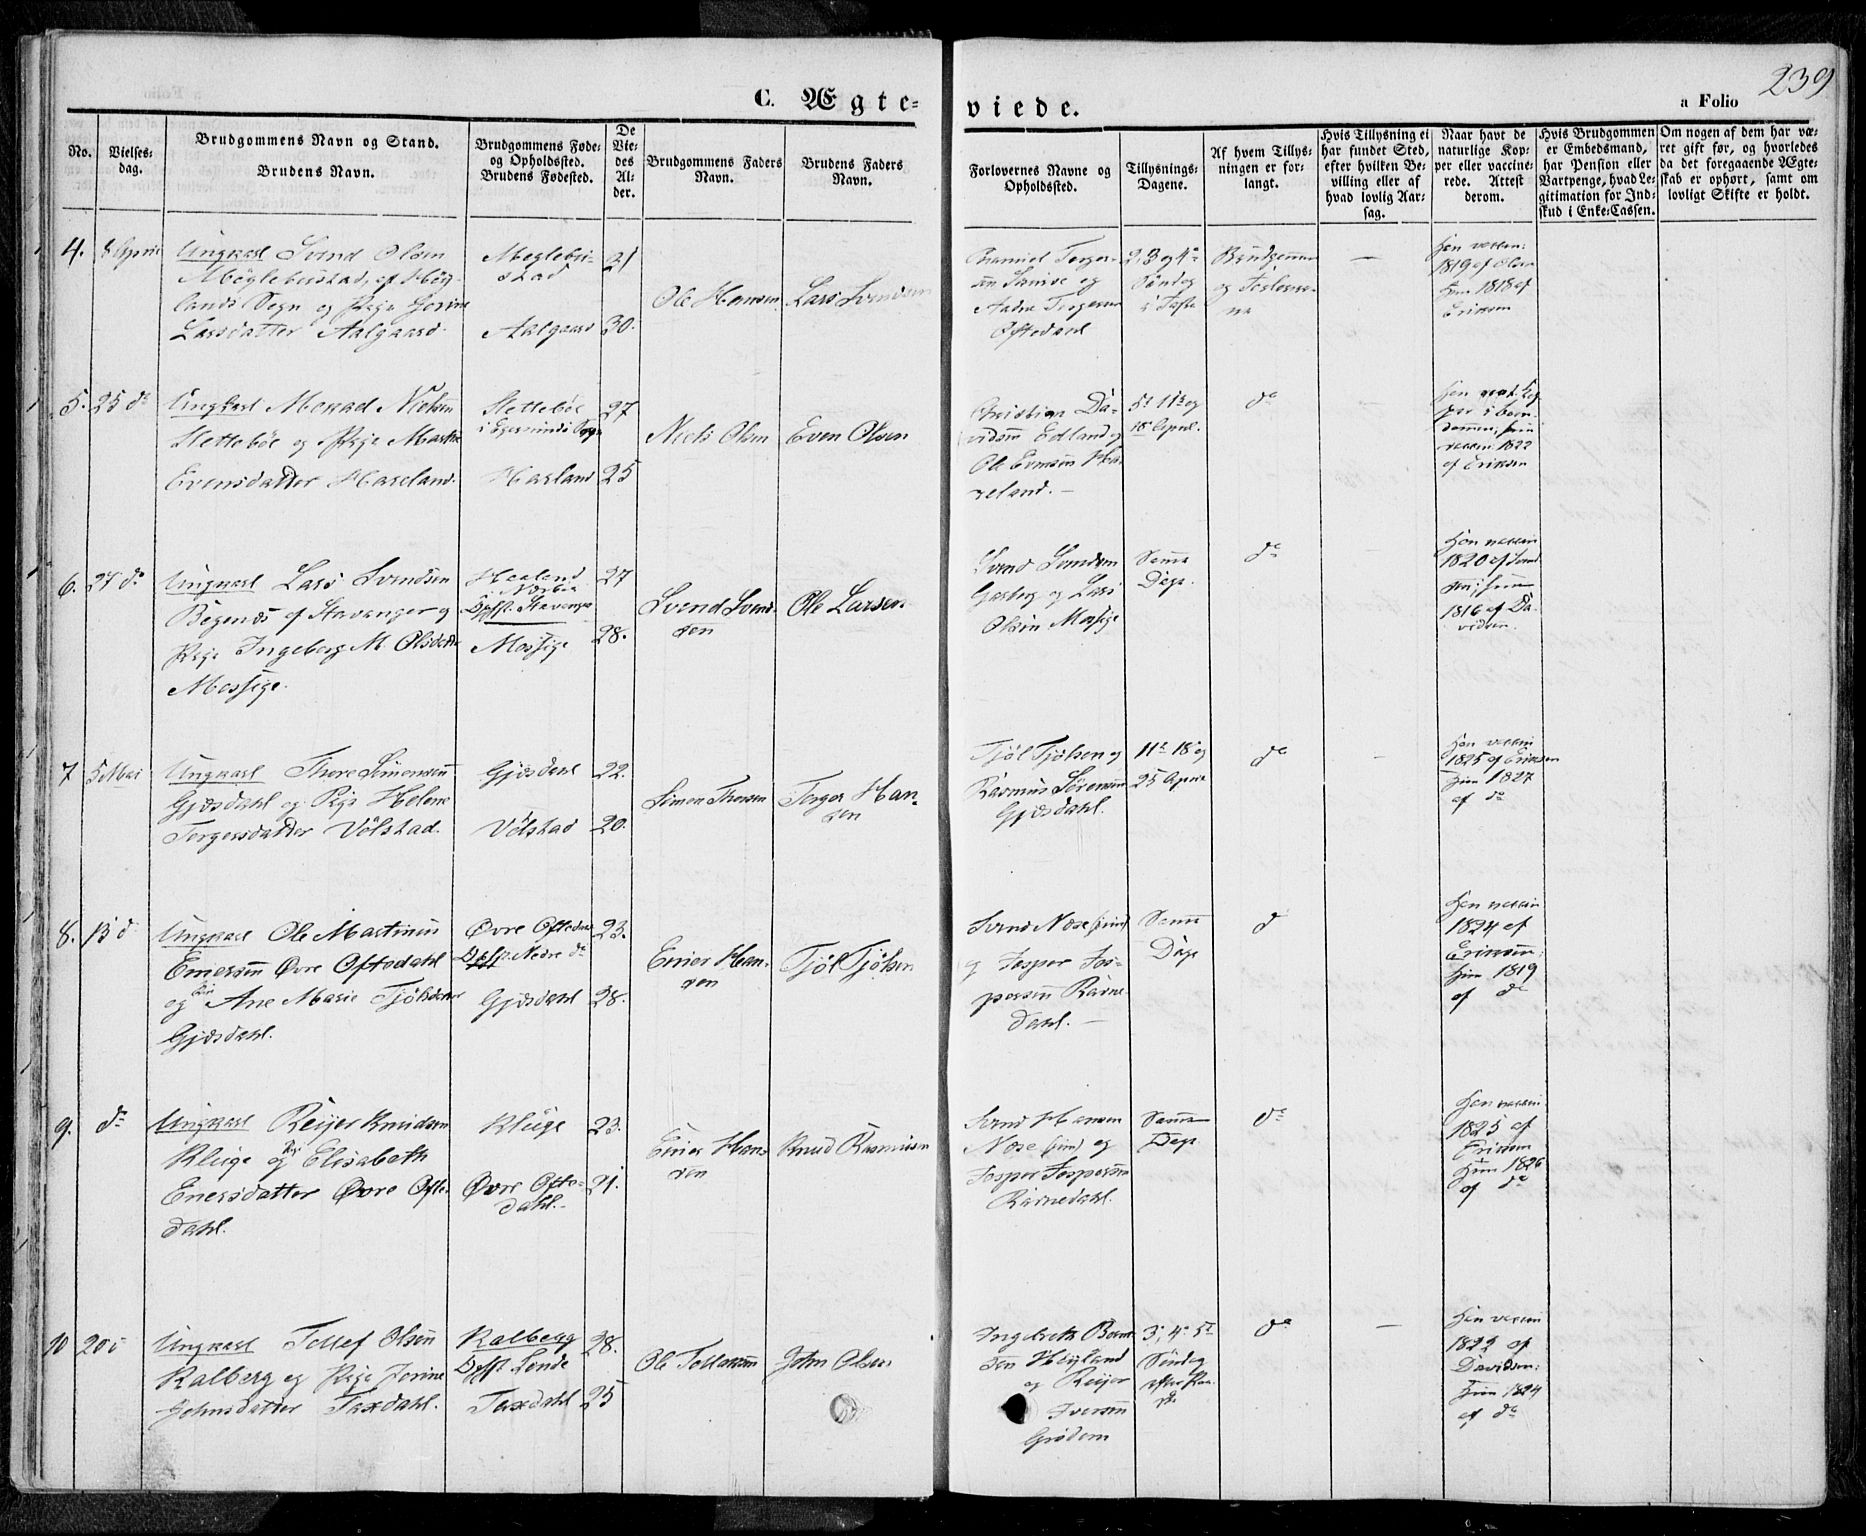 239
C. Ægte-
viede.
a Folio
No.
Vielses-
dag.
Brudgommens Navn og Stand.
Brudens Navn.
Brudgommens Føde-
og Opholdssted.
Brudens Fødested.
De
Vie-
des
Al-
der.
Brudgommens Faders
Navn.
Brudens Faders
Navn.
Forlovernes Navne og
Opholdssted.
Tillysnings-
Dagene.
Af hvem Tillys-
ningen er for-
langt.
Hvis Tillysning ei
har fundet Sted,
efter hvilken Be-
villing eller af
hvad lovlig Aar-
sag.
Naar havt de
naturlige Kop-
per eller vaccine-
rede. Attest
derom.
Hvis Brudgommen
er Embedsmand,
har Pension eller
Vartpenge, hvad Le-
gitimation for Ind-
skud i Enke-Cassen.
Om nogen af dem har væ-
ret gift før, og hvorledes
da det foregaaende Ægte-
skab er ophørt, samt om
lovligt Skifte er holdt.
4.
8 April
Ungkarl Svend Olsen
Møglebustad, af Høg-
lands Sogn og Pige Jorine
Larsdatter Aalgaard.
Moglebu-
stad
Aalgaard
21
30.
Ole Hansen
Lars Svendsen
Torger-
og
Aadne Torgersen
Oftedahl
2, 3 og 4
Søndag
i Faste
Brudgommen
og Forlover-
ne
—
Han vaccin:
1819 af Olsen
Hun 1818 af
Eriksen
5.
25 do
Ungkarl Monrad Nielsen
Slettebøe og Pige Marthe
Evensdatter Haveland.
Slettebøe
i Egersunds Sogn
Havland
27
25
Niels Olsen
Even Olsen
Christian Da-
vidsen Edland og
Ole Evensen Ha-
veland. —
5t 11te og
18 April.
do
Han havt Kop
per i barn
dommen, hun
vaccin: 1822
af Eriksen
6.
27 do
Ungkarl Lars Svendsen
af Stavanger og
Pige Ingeborg M. Olsdatter
Mossige.
Haaland
Nærbøe
Opht. Stavanger
Mossige
27
28.
Svend Svend-
sen
Ole Larsen
Svend Svendsen
og Lars
Olsen Mossige
Samme
Dage.
do
Han vaccin
1820 af Svend
sen; hun
1816 af Da-
vidsen.
7
5 Mai
Ungkarl Thore Simensen
Gjesdahl og Pige Helene
Torgersdatter Vølstad.
Gjesdahl
Vølstad
22.
20.
Simen Thorsen
Torger Han-
sen
Tjøl Tjølsen og
Rasmus Sørensen
Gjesdahl.
11te 18 og
25 April
do
Han vaccin
1825 af Eriksen
Hun 1827
af do
8.
13 d
Ungkarl Ole Martinus
Enersen Øvre Oftedahl
og Pige Ane Marie Tjølsdatter
Gjesdahl.
Øvre Oftedahl
Opht. Nedre do
Gjesdahl
23.
28.
Ener Han-
sen
Tjøl Tjølsen
Svend Næsesund
og Jesper Jes-
persen Ravne-
dahl. —
Samme
Dage
d
Han vaccin
1824 af
Eriksen;
Hun 1819
af do
9.
do
Ungkarl Reijer Knudsen
Kluge og Pige Elisabeth
Enersdatter Øvre Ofte-
dahl.
Kluge
Øvre Ofte-
dahl.
23.
21.
Ener Han-
sen
Knud Rasmusen
Svend Hansen
Næsesund og
Jesper Jespersen
Ravnedahl.
Samme
Dage
do
Han vaccin
1825 af
Eriksen
Hun 1826
af do
10
20 d
Ungkarl Tollef Olsen
Kalberg og Pige Jorine
Johnsdatter Taxdahl.
Kalberg
Opht. Lende
Taxdahl
28.
25
Ole Tollefsen
John Olsen
Ingebreth Bernt
sen Høyland
og Reijer
Iversen
Grødem
3, 4 5te
Søndag
efter Paa-
ske
do
—
Han vaccin
1822 af
Davidsen:
Hun 1824
af do